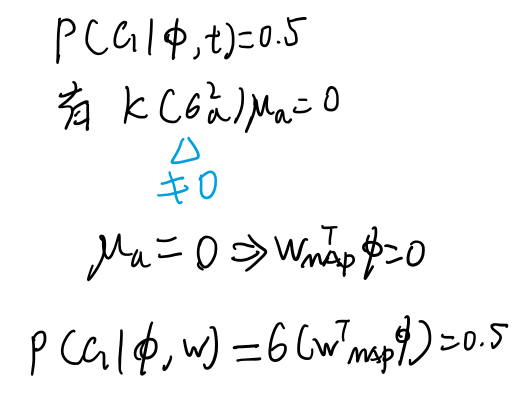 P(C₁|ϕ,t)=0.5
有 K(σₐ²)μₐ=0
△
≠0
μₐ=0⇒Wᵀ_MAP ϕ=0
P(C₁|ϕ,w)=σ(wᵀ_MAP ϕ)=0.5